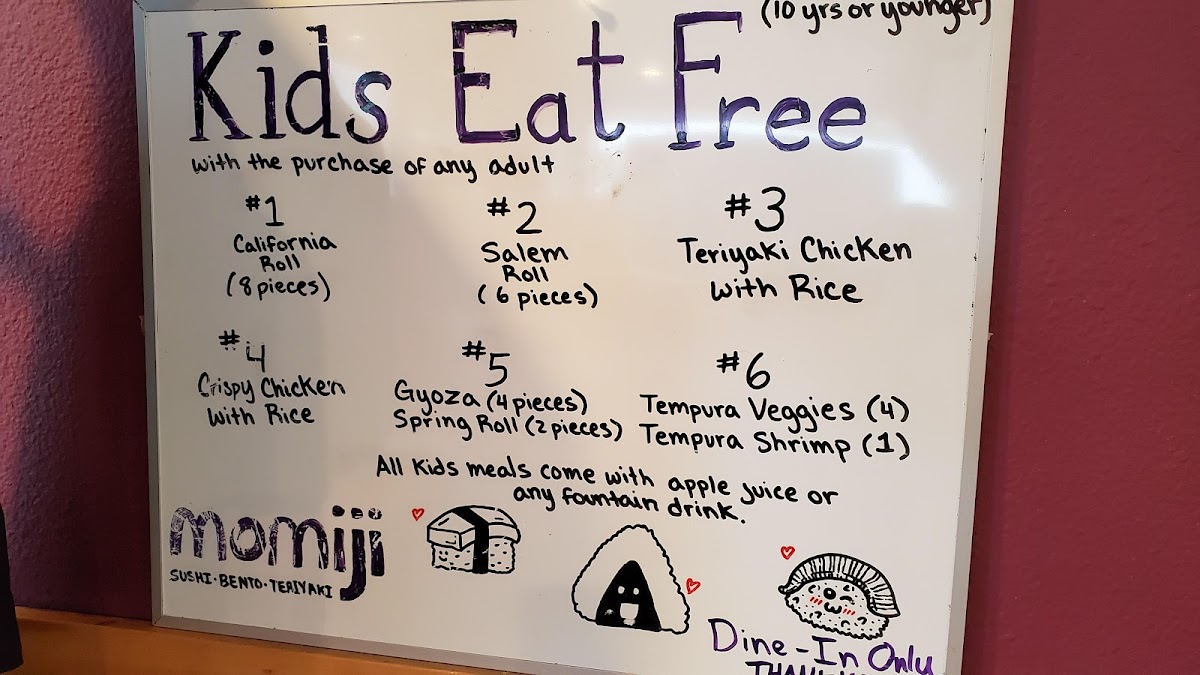 (10 yrs or younger)
Kids Eat Free
with the purchase of any adult
#1
California
Roll
(8 pieces)
#2
Salem
Roll
(6 pieces)
#3
Teriyaki Chicken
with Rice
#4
Crispy Chicken
with Rice
#5
Gyoza (4 pieces)
Spring Roll (2 pieces)
#6
Tempura Veggies (4)
Tempura Shrimp (1)
All kids meals come with apple juice or
any fountain drink.
momiji
SUSHI·BENTO·TERIYAKI
Dine-In Only